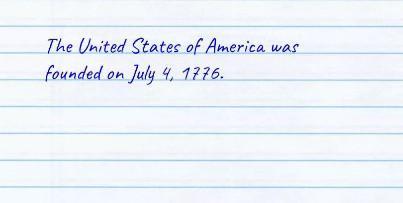 The United States of America was
founded on July 4, 1776.